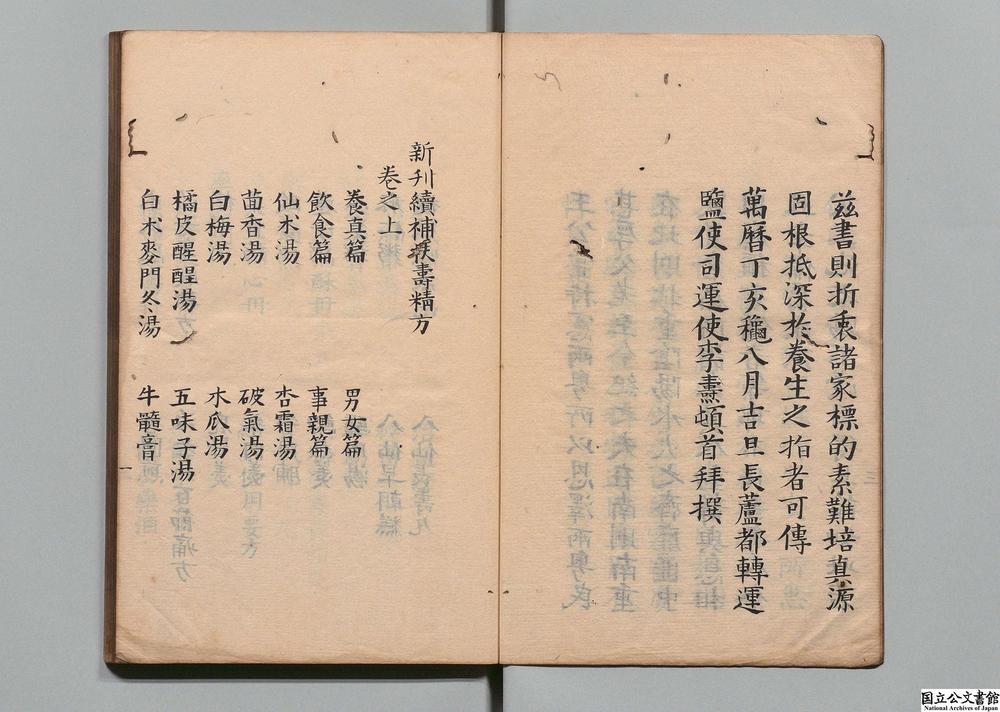 茲書則折衷諸家標的素難培真源
固根抵深扵養生之指者可傳
萬曆丁亥龝八月吉旦長蘆都轉運
鹽使司運使李燾頓首拜撰
新刊續補扶壽精方
卷之上
養真篇 男女篇
飲食篇 事親篇
仙朮湯 杏霜湯
茴香湯 破氣湯
白梅湯 木瓜湯
橘皮醒醒湯 五味子湯
白朮麥門冬湯 牛髓膏
一
国立公文書館
National Archives of Japan